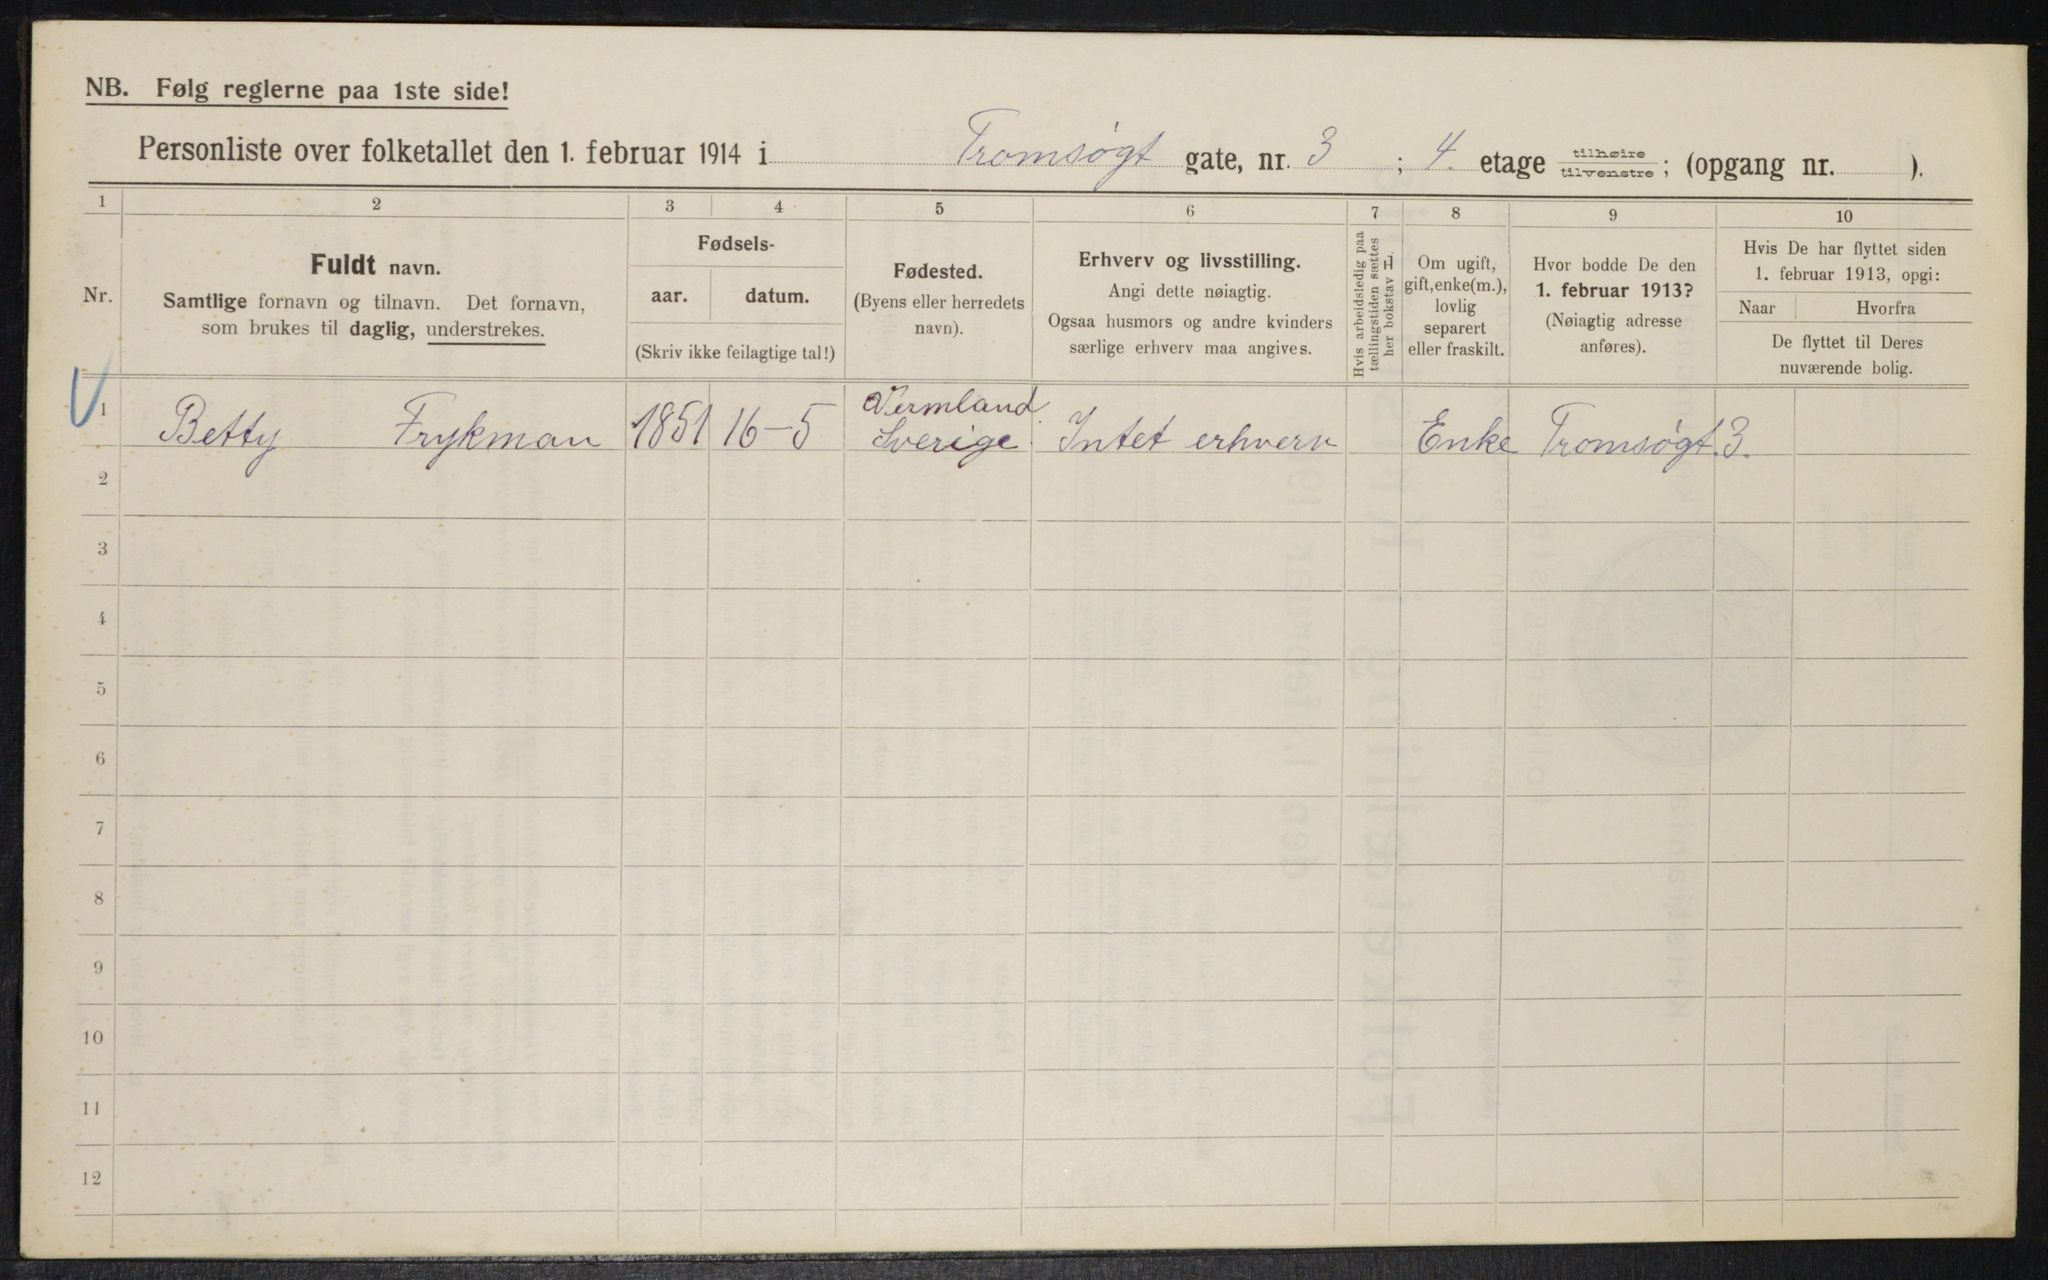 NB. Følg reglerne paa 1ste side!
Personliste over folketallet den 1. februar 1914 i Tromsøgt gate, nr. 3 ; 4. etage tilhøire tilvenstre ; (opgang nr. ).
1 2 3 4 5 6 7 8 9 10
Nr.
Fuldt navn.
Samtlige fornavn og tilnavn. Det fornavn,
som brukes til daglig, understrekes.
Fødsels-
aar. datum.
(Skriv ikke feilagtige tal!)
Fødested.
(Byens eller herredets
navn).
Erhverv og livsstilling.
Angi dette nøiagtig.
Ogsaa husmors og andre kvinders
særlige erhverv maa angives.
Hvis arbeidsledig paa
tællingstiden sættes
her bokstav L.
Om ugift,
gift, enke(m.),
lovlig
separert
eller fraskilt.
Hvor bodde De den
1. februar 1913?
(Nøiagtig adresse
anføres).
Hvis De har flyttet siden
1. februar 1913, opgi:
Naar Hvorfra
De flyttet til Deres
nuværende bolig.
1 Betty Frykman 1851 16-5 Vermland
Sverige Intet erhverv Enke Tromsøgt. 3.
2
3
4
5
6
7
8
9
10
11
12